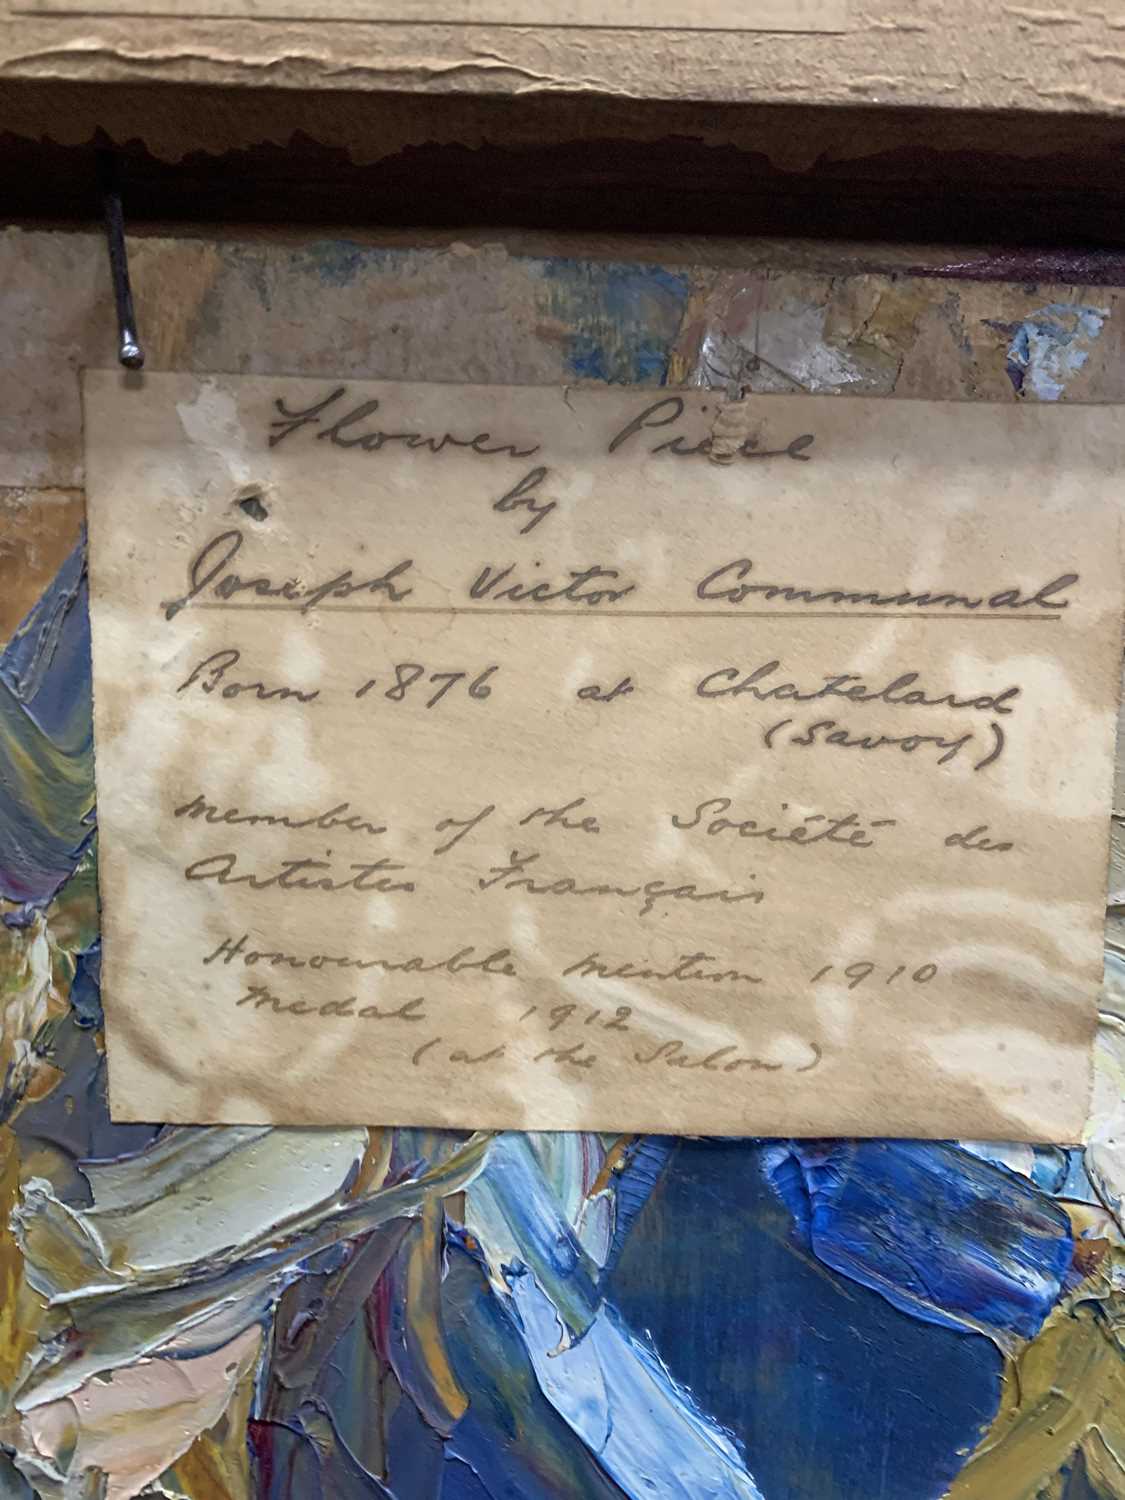 Flower Piece
by
Joseph Victor Communal
Born 1876 at Chatelard
(Savoy)
Member of the Société des
Artistes Français
Honourable Mention 1910
Medal 1912
(at the Salon)